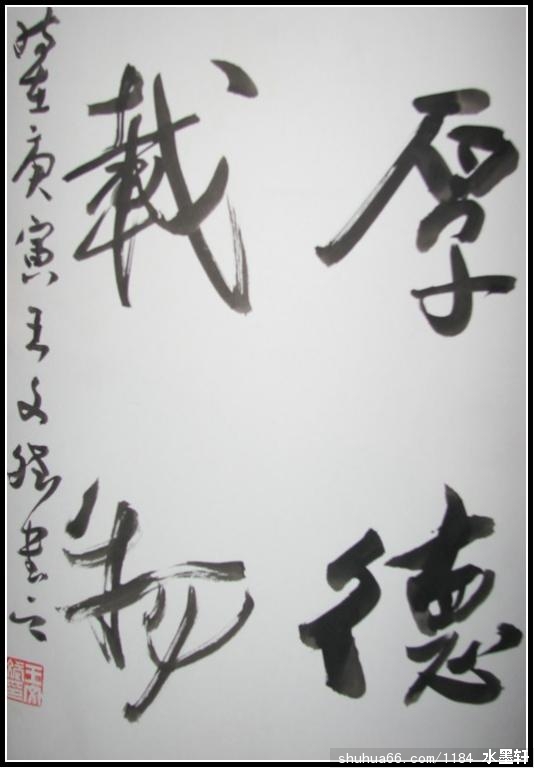 厚德
載物
時在庚寅王文強書
shuhua66.com/1184 水墨轩